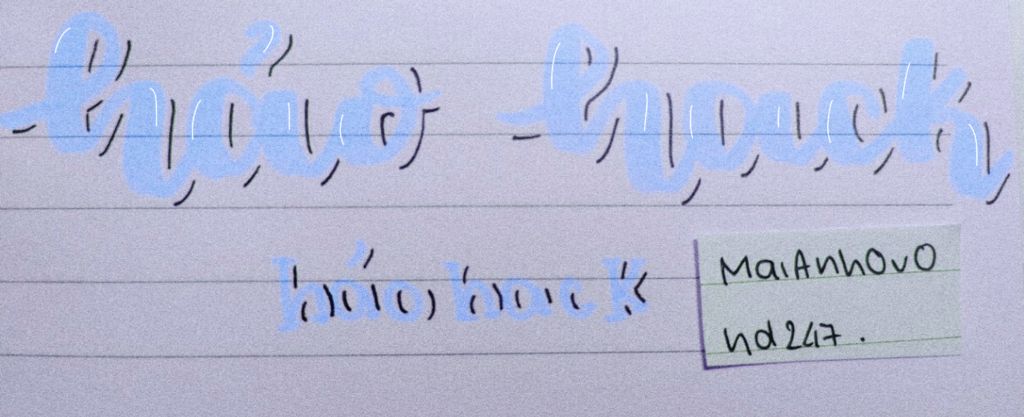 hảo hack
hảo hack
MaiAnhOvO
hd247.